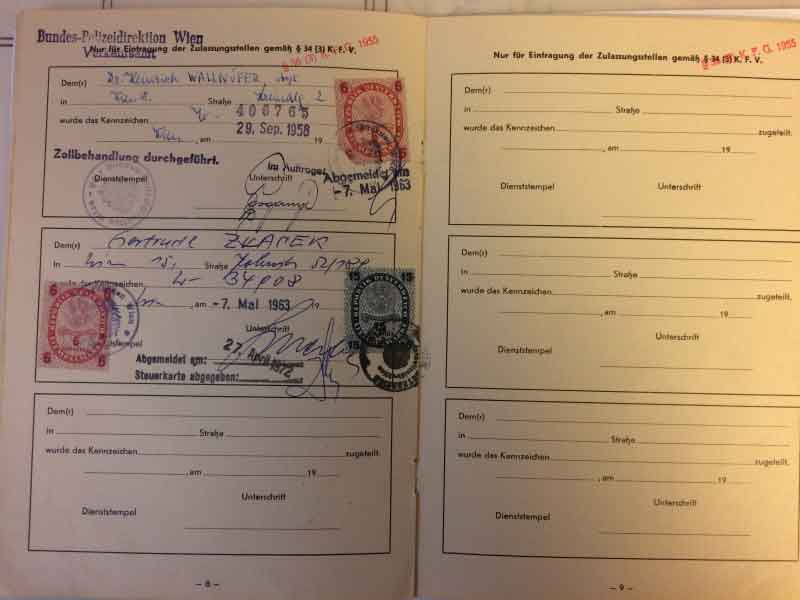 Bundes-Polizeidirektion Wien
Verkehrsamt
Nur für Eintragung der Zulassungsstellen gemäß § 34 (3) K. F. V.
§ 36 (3) K. F. G. 1955
Dem(r) Dr. Heinrich WALLNÖFER
in Wien Straße 2
wurde das Kennzeichen W- 400765
Wien, am 29. Sep. 1958 19
Zollbehandlung durchgeführt.
Im Auftrage:
Dienststempel Unterschrift
Abgemeldet am
-7. Mai 1963
Dem(r) Gertrude
in Wien 15, Straße
W- 34908
, am -7. Mai 1963
Unterschrift
Abgemeldet am: 27. April 1972
Steuerkarte abgegeben:
Dem(r)
in Straße
wurde das Kennzeichen zugeteilt.
, am 19
Unterschrift
Dienststempel
– 8 –
Nur für Eintragung der Zulassungsstellen gemäß § 34 (3) K. F. V.
K. F. G. 1955
Dem(r)
in Straße
wurde das Kennzeichen zugeteilt.
, am 19
Dienststempel Unterschrift
Dem(r)
in Straße
wurde das Kennzeichen zugeteilt.
, am 19
Unterschrift
Dienststempel
Dem(r)
in Straße
wurde das Kennzeichen zugeteilt.
, am 19
Unterschrift
Dienststempel
– 9 –